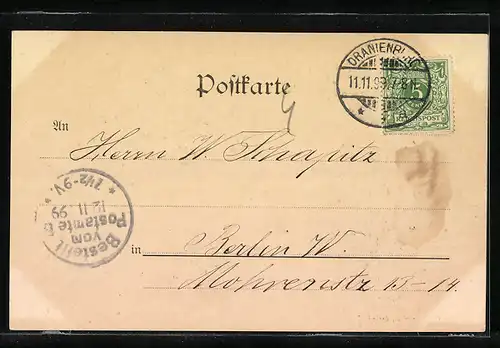 Postkarte
ORANIENBURG
11.11.99. 7-8 N.
5
REICHSPOST
An
Herrn W. Schapitz
Bestellt
vom
Postamte
12.11.99
7½-9V.
in
Berlin W.
Mohrenstr. 13-14.